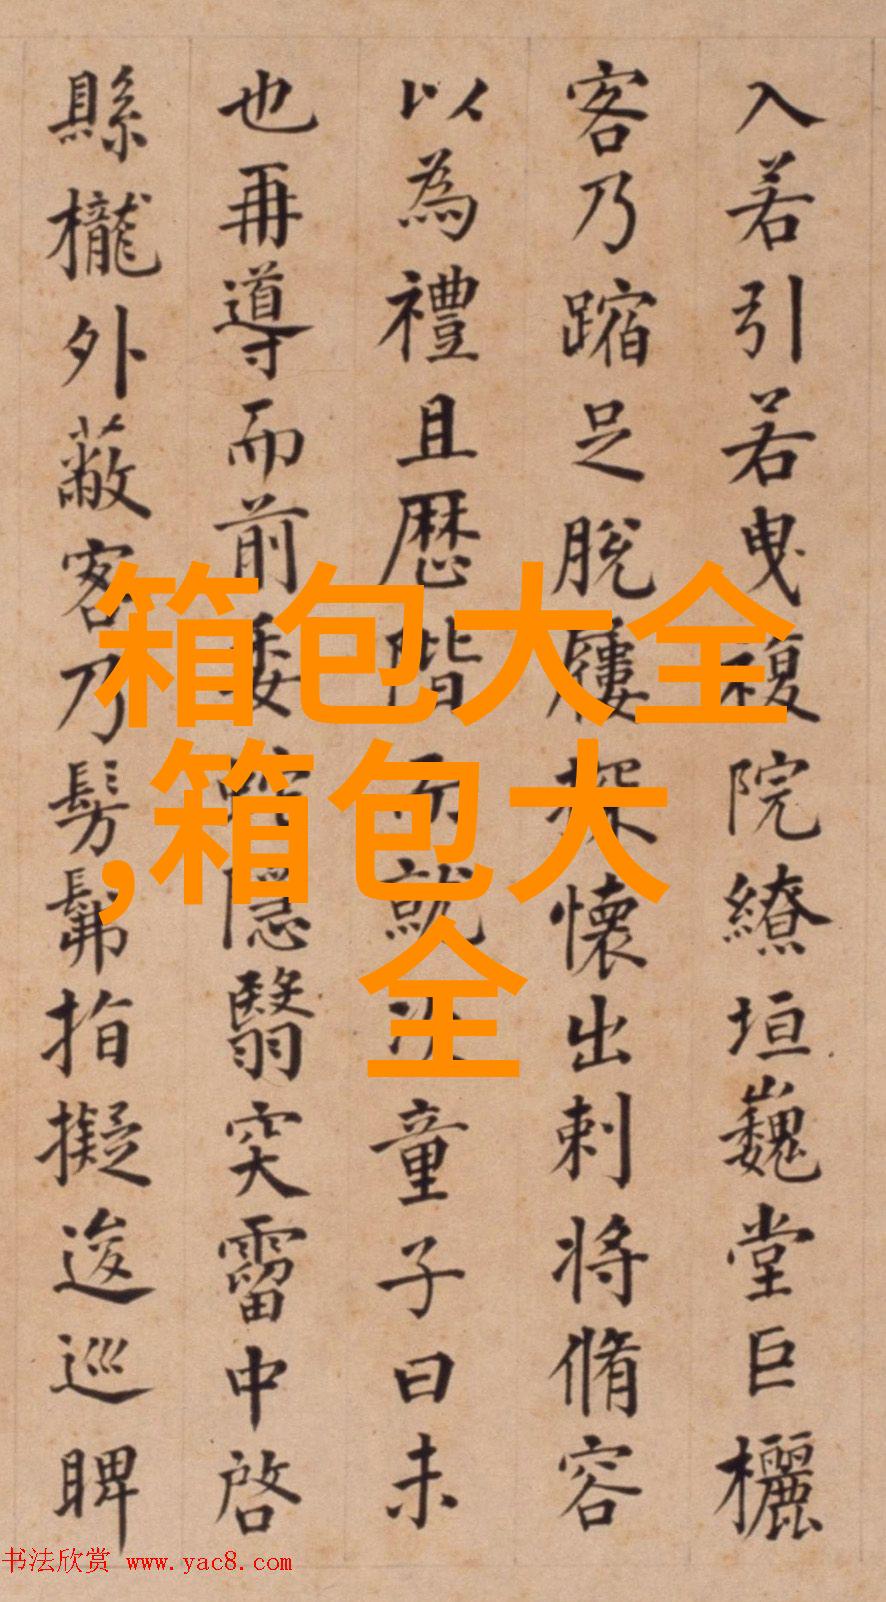 入若引若曳複院繚垣巍堂巨欐
客乃蹜足脫屨探懷出刺將脩容
以為禮且歷階而就次童子曰未
也再導而前隱翳穾霤中啓
縣櫳外蔽客乃髣髴指擬逡巡睥
箱包大全
,箱包大
全
书法欣赏 www.yac8.com